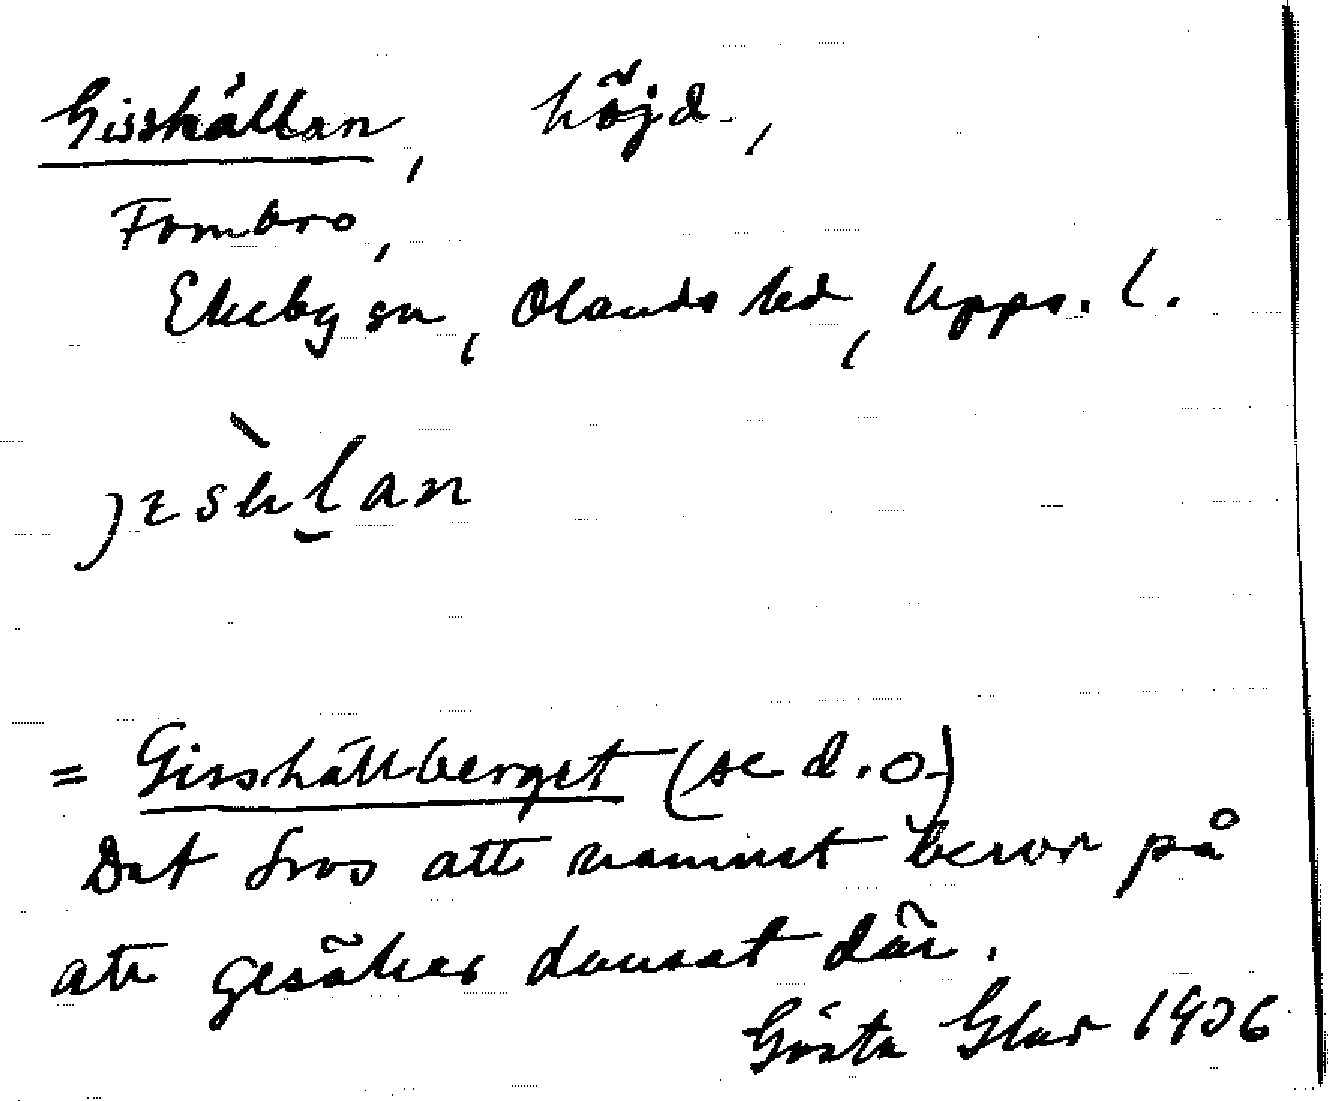 Gisshällan, höjd,
Fombro,
Ekeby sn, Olands hd, Upps. l.
= Gisshällberget (se d. o.)
Det tros att namnet beror på
att gesäker dansat där.
Gösta 1936